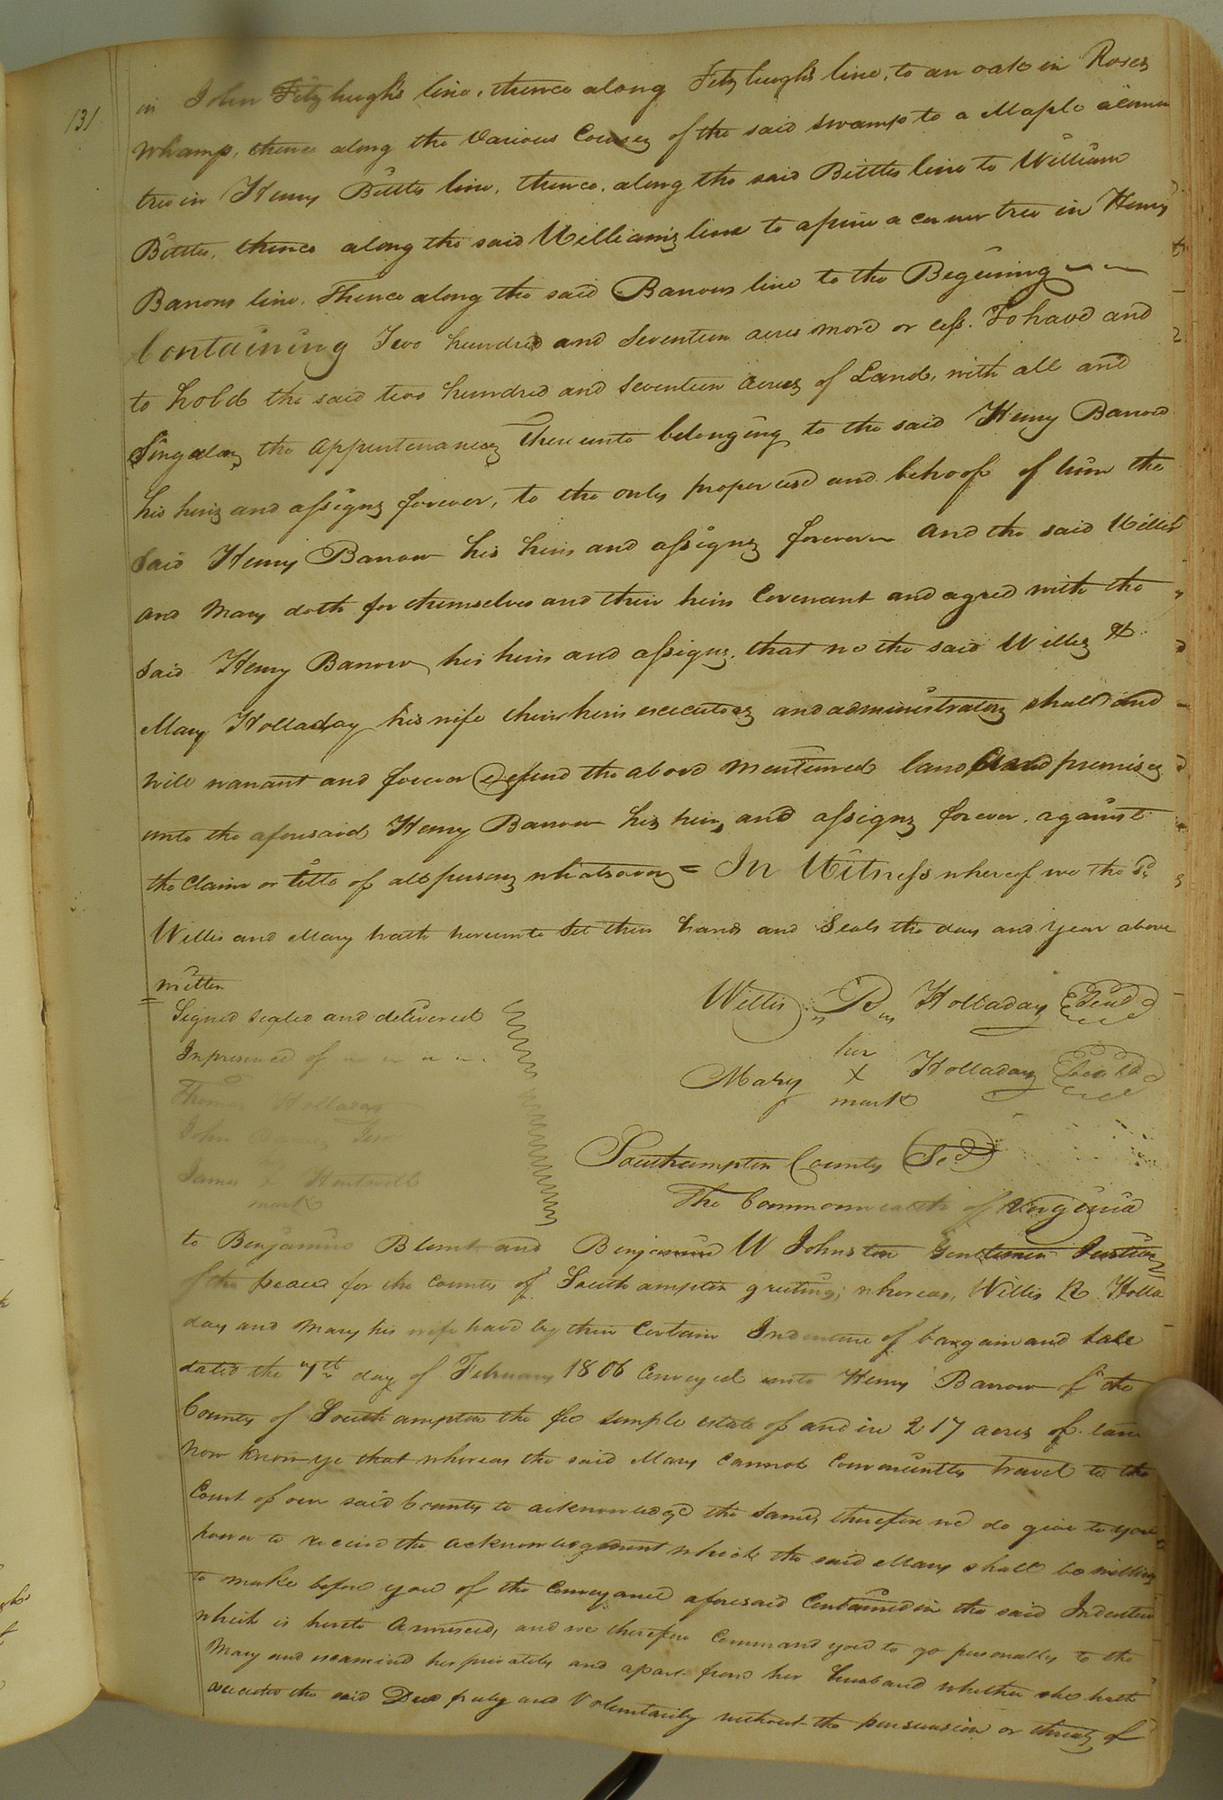 131
in John Fitzhugh's line, thence along Fitzhugh's line, to an oak in Roses
Whamp, thence along the Various Courses of the said Swamp to a Maple a corner
tree in Henry Bittles line, thence, along the said Bittles line to William
Bittles, thence along the said Williams line to a pine a corner tree in Henry
Barrows line. Thence along the said Barrows line to the Begining
Containing Two hundred and Seventeen acres more or less. To have and
to hold the said two hundred and Seventeen acres of Land, with all and
Singular, the appurtenances There unto belonging to the said Henry Barrow
his heirs and assigns forever, to the only proper use and behoof of him the
Said Henry Barrow his heirs and assigns forever and the said Willis
and Mary doth for themselves and their heirs Covenant and agree with the
Said Henry Barrow, his heirs and assigns. that we the said Willis &
Mary Holladay his wife their heirs executors and administrators shall and
will warrant and forever Defend the above Mentioned land and premises
unto the aforesaid Henry Barrow his heirs, and assigns forever. against
the Claim or title of all persons whatsoever = In Witness whereof we the Sd
Willis and Mary hath hereunto Set their hands and Seals the day and year above
written
Signed sealed and delivered
In presence of
Willis R Holladay Seal
her
Mary X Holladay Seal
mark
Thomas Holladay
John Barnes
James X Hartwell
mark
Southampton County Sc
The Commonwealth of Virginia
to Benjamin Blunt and Benjamin W Johnston Gentlemen Justices
of the peace for the county of Southampton greeting; whereas, Willis R Holla
day and Mary his wife have by their Certain Indenture of bargain and Sale
dated the 7th day of February 1806 Conveyed unto Henry Barrow of the
County of Southampton the fee simple estate of and in 217 acres of land
Now know ye that whereas the said Mary Cannot Conveniently travel to the
Court of our said County to acknowledge the Same, therefore we do give to you
power to receive the acknowledgement which the said Mary shall be willing
to make before you of the Conveyance aforesaid Contained in the said Indenture
which is hereto Annexed, and we therefore Command you to go personally to the
Mary and examined her privately and apart from her husband whether she hath
executed the said Deed freely and Voluntarily without the persuasion or threats of